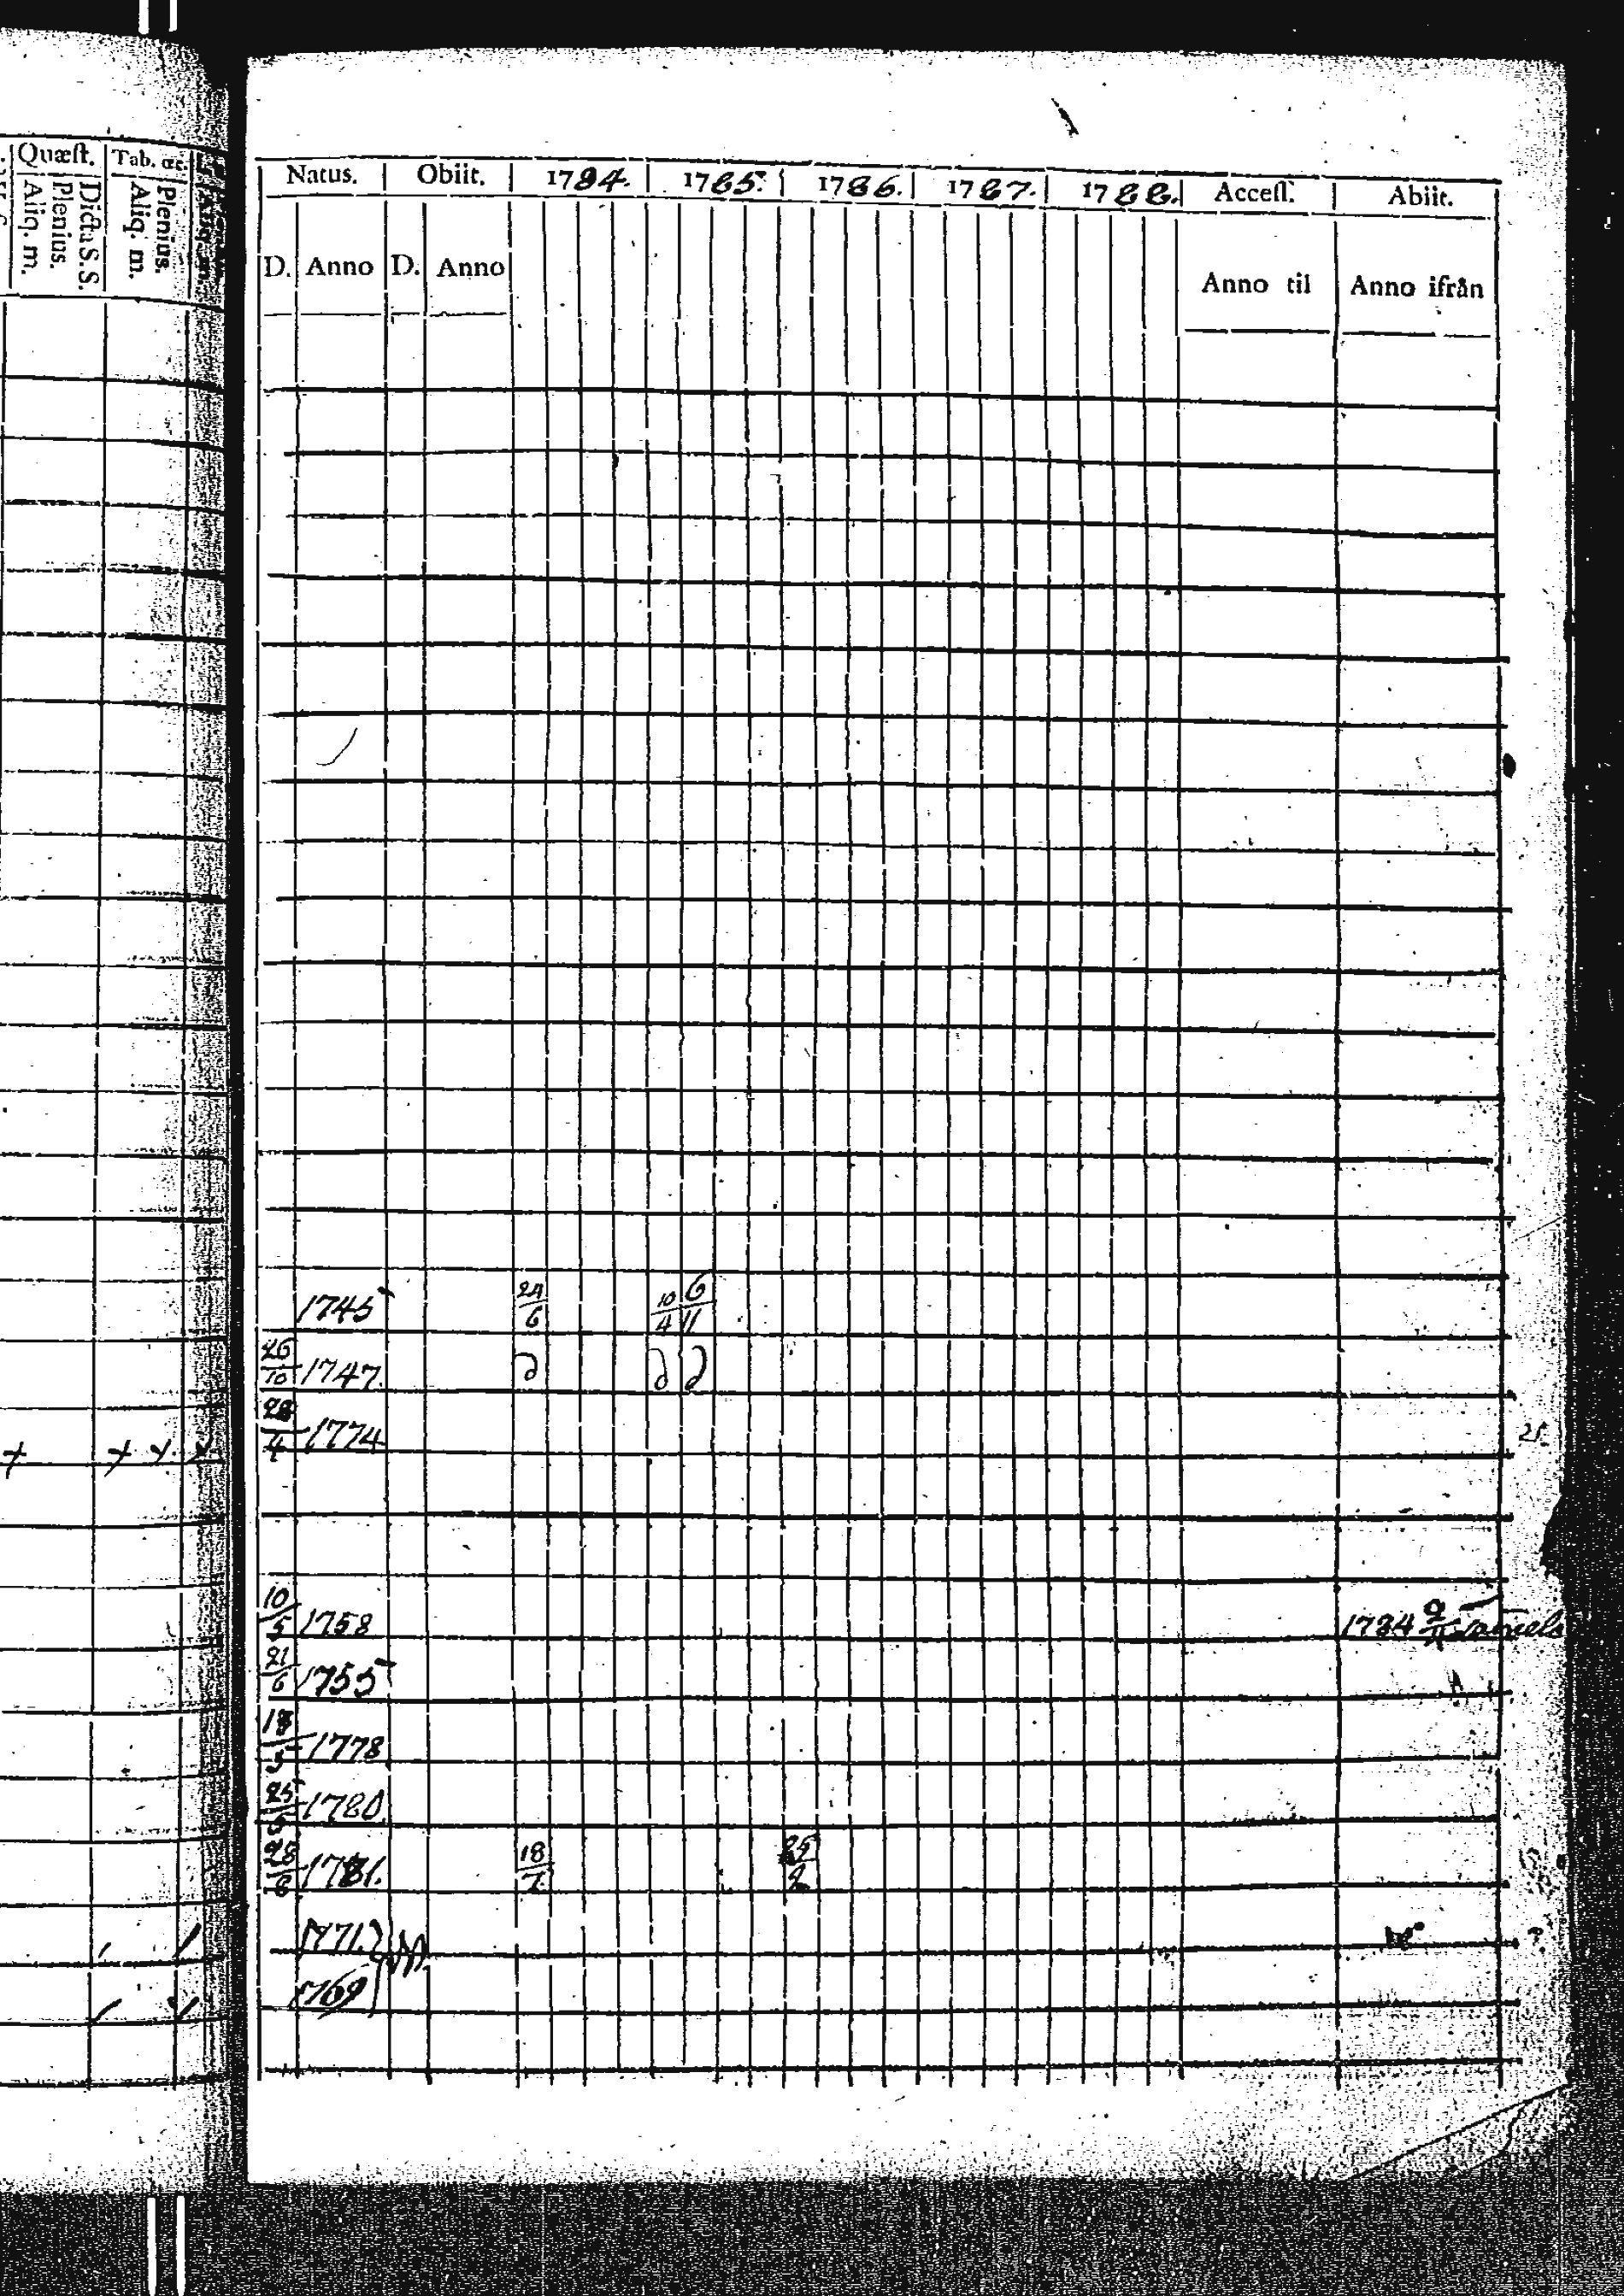 Quæst. Tab. œc.
Aliq. m. Plenius. Dicta S. S. Aliq. m. Plenius.
Natus. Obiit. 1784. 1785. 1786. 1787. 1788. Access. Abiit.
D. Anno D. Anno Anno til Anno ifrån
1745 24/6 10/4 6/11
26/10 1747. d d d
28/4 1774
10/5 1758 1784
21/6 1755
18/5 1778
25 1780
28/6 1781. 18/7 25/2
1771.
1769